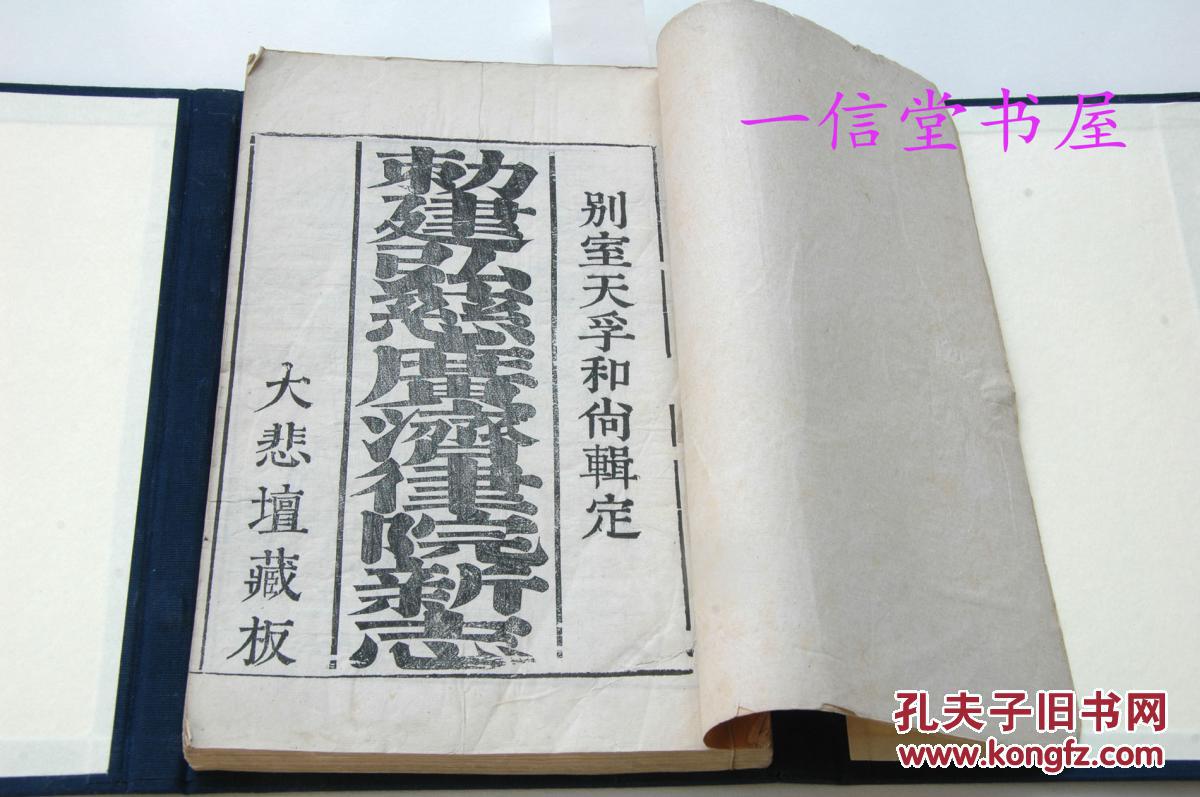 别室天孚和尙輯定
勅建弘慈廣濟律院新志
大悲壇藏板
一信堂书屋
孔夫子旧书网
www.kongfz.com